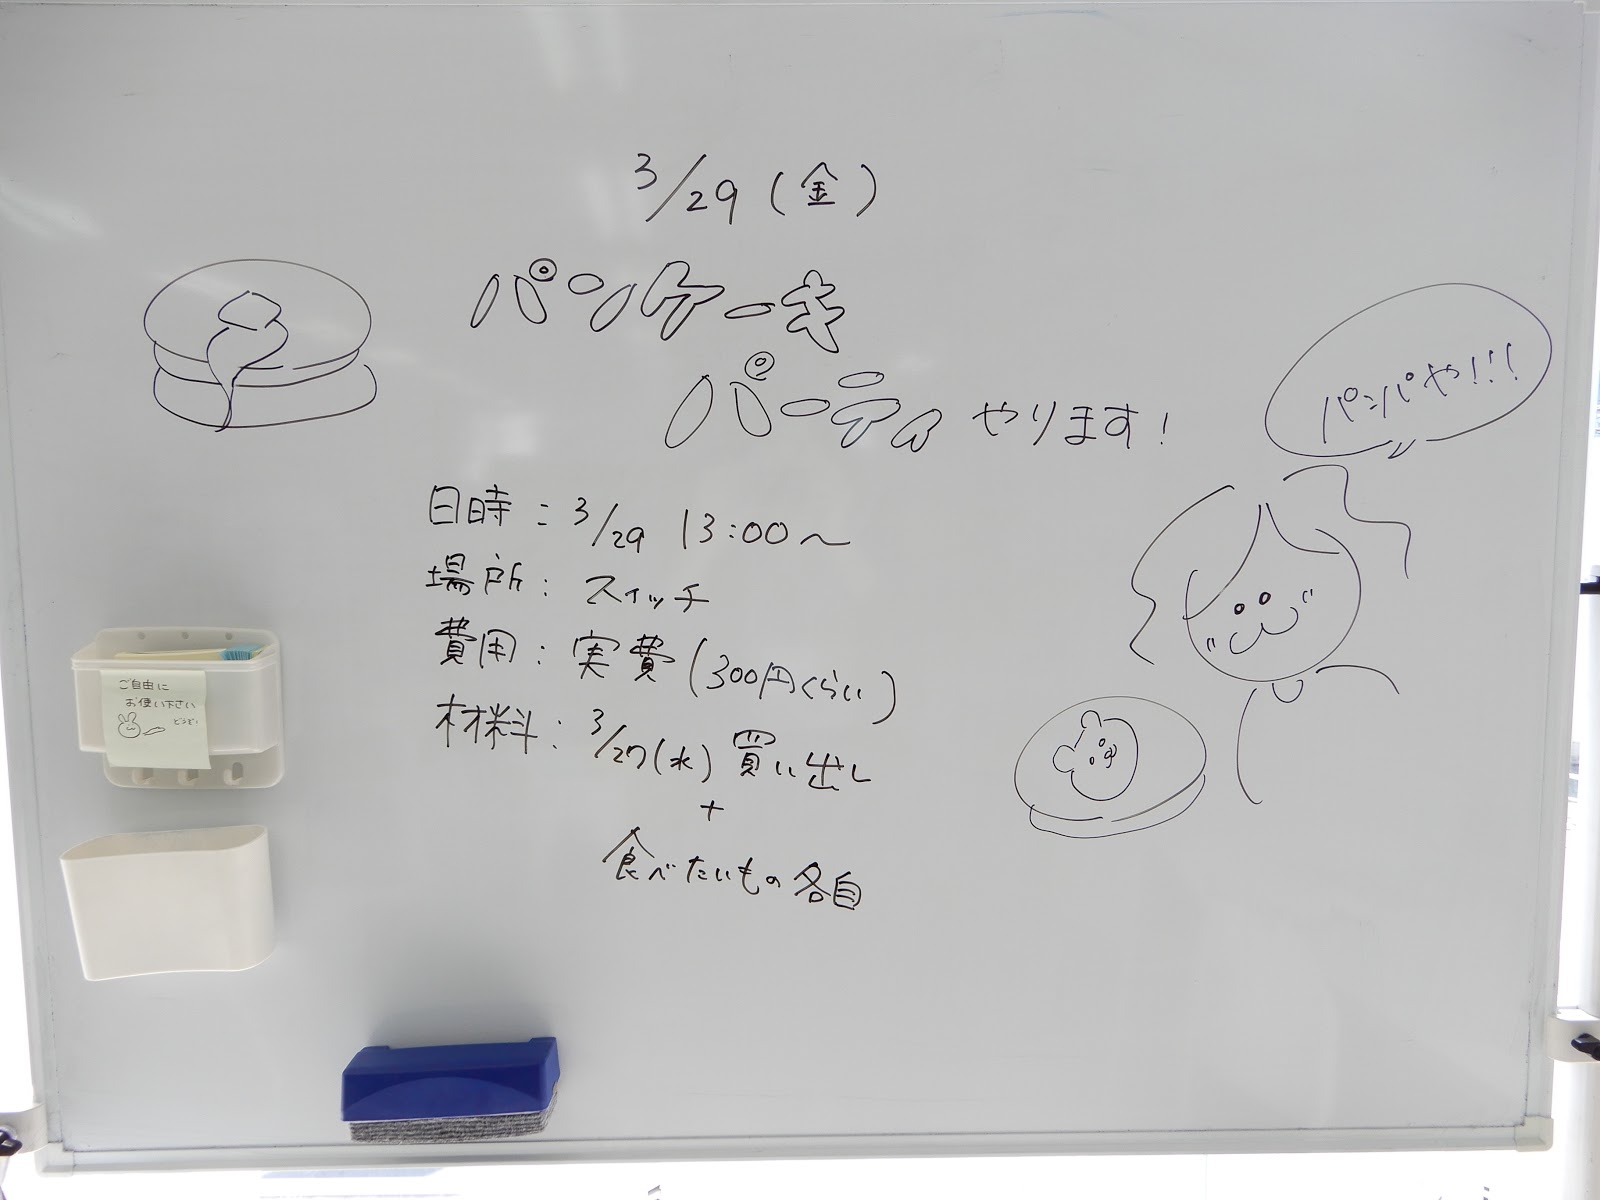 3/29(金)
パンケーキ
パーティ やります!
パンパや!!!
日時:3/29 13:00〜
場所:スイッチ
費用:実費(300円くらい)
材料:3/27(水)買い出し
+
食べたいもの各自
ご自由に
お使い下さい
どうぞ!